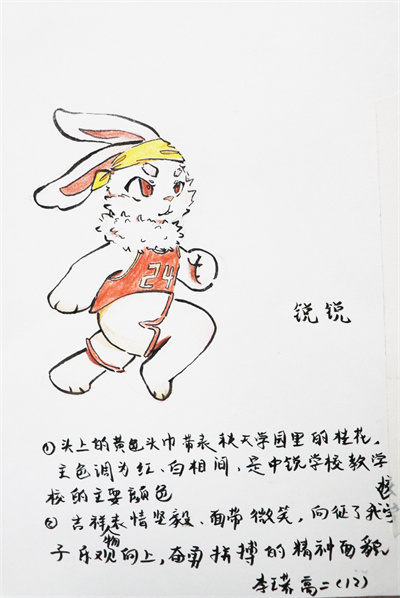 24
锐锐
①头上的黄色头巾带表秋天学园里的桂花,
主色调为红、白相间,是中锐学校教学
校的主要颜色
② 吉祥物表情坚毅、面带微笑,向征了我校学
子乐观向上,奋勇拼搏的精神面貌
高二(12)